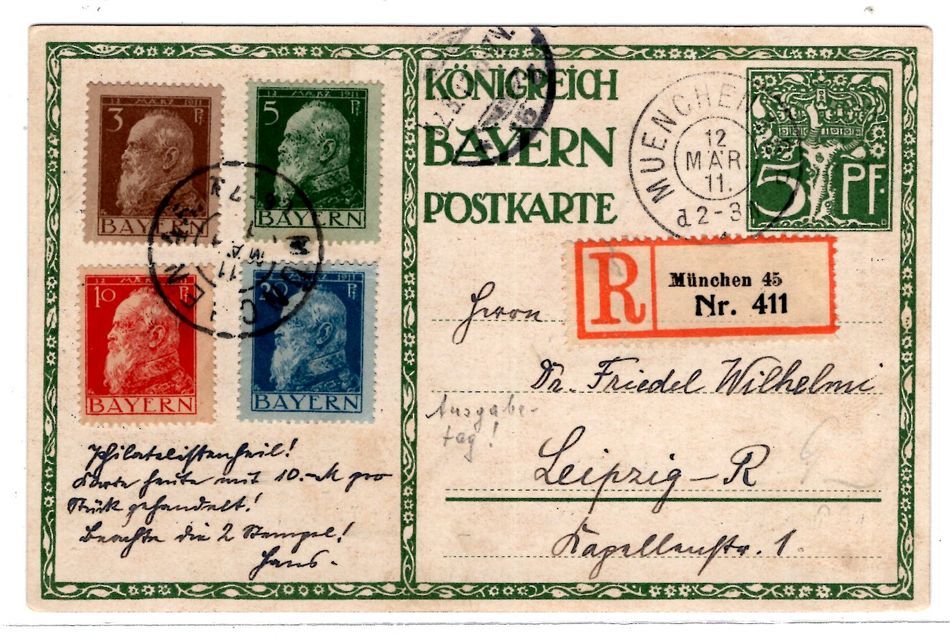 KÖNIGREICH
BAYERN
POSTKARTE
12 MÄRZ 1911
3 Pf
BAYERN
12 MÄRZ 1911
5 Pf
BAYERN
12 MÄRZ 1911
10 Pf
BAYERN
12 MÄRZ 1911
20 Pf
BAYERN
5 PF.
MUENCHEN
12
MÄR
11.
2-3
R
München 45
Nr. 411
Herrn
Dr. Friedel Wilhelmi
Ausgabe-
tag!
Leipzig-R
Kapellenstr. 1.
Philatelistenheil!
Karte heute mit 10.-M pro
Stück gehandelt!
Beachte die 2 Stempel!
Hans.